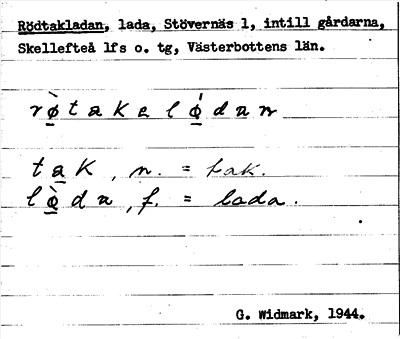 Rödtakladan, lada, Stövernäs 1, intill gårdarna,
Skellefteå lfs o. tg, Västerbottens län.
rø̀takelǿdan
tak, n. = tak.
lø̀da, f. = lada.
G. Widmark, 1944.